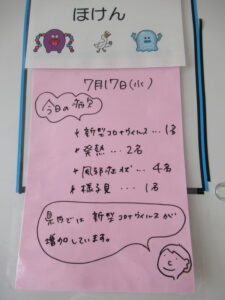 ほけん
7月17日(水)
今日の病欠
新型コロナウイルス…1名
発熱…2名
風邪症状…4名
様子見…1名
県内では新型コロナウイルスが
増加しています。